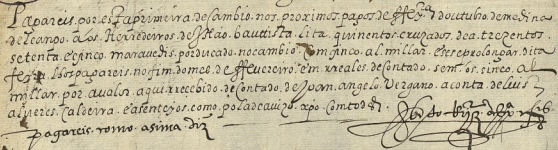 pagareis por esta primeira de cambio nos proximos pagos de ffeyra doutubro de medina
delcanpo a los Herredeiros de João bautista lita quinentos cruzados de a trezentos
setenta e cinco maravedis por ducado no cambio com cinco al millar e se se prolongar dita
feira los pagareis no fim do mes de ffevereiro em rreales de contado sem os cinco al
millar por a valor aqui rrecebido de contado de Joam angelo vergano a conta de luis
alverez caldeira e asenteyos como por la de avizo xpo com todos
pagareis como asima diz